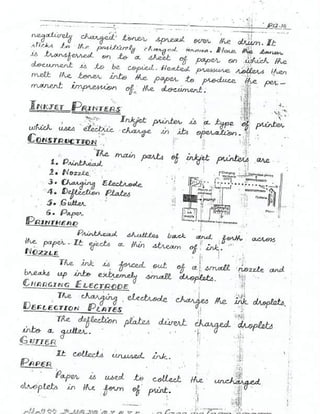 negatively charged toner spread over the drum. It
sticks to the positively charged
is transferred on to a sheet of paper on which the
document is to be copied. Heated pressure rollers then
melt the toner into the paper to produce the per-
manent impression of the document.
INKJET PRINTERS
Inkjet printer is a type of printer
which uses electric charge in its operation.
CONSTRUCTION
The main parts of inkjet printers are
1. Printhead
2. Nozzle
3. Charging Electrode
4. Deflection Plates
5. Gutter
6. Paper
PRINTHEAD
Printhead shuttles back and forth across
the paper. It ejects a thin stream of ink.
NOZZLE
The ink is forced out of a small nozzle and
breaks up into extremely small droplets.
CHARGING ELECTRODE
The charging electrode charges the ink droplets.
DEFLECTION PLATES
The deflection plates divert charged droplets
into a gutter.
GUTTER
It collects unused ink.
PAPER
Paper is used to collect the uncharged
droplets in the form of print.